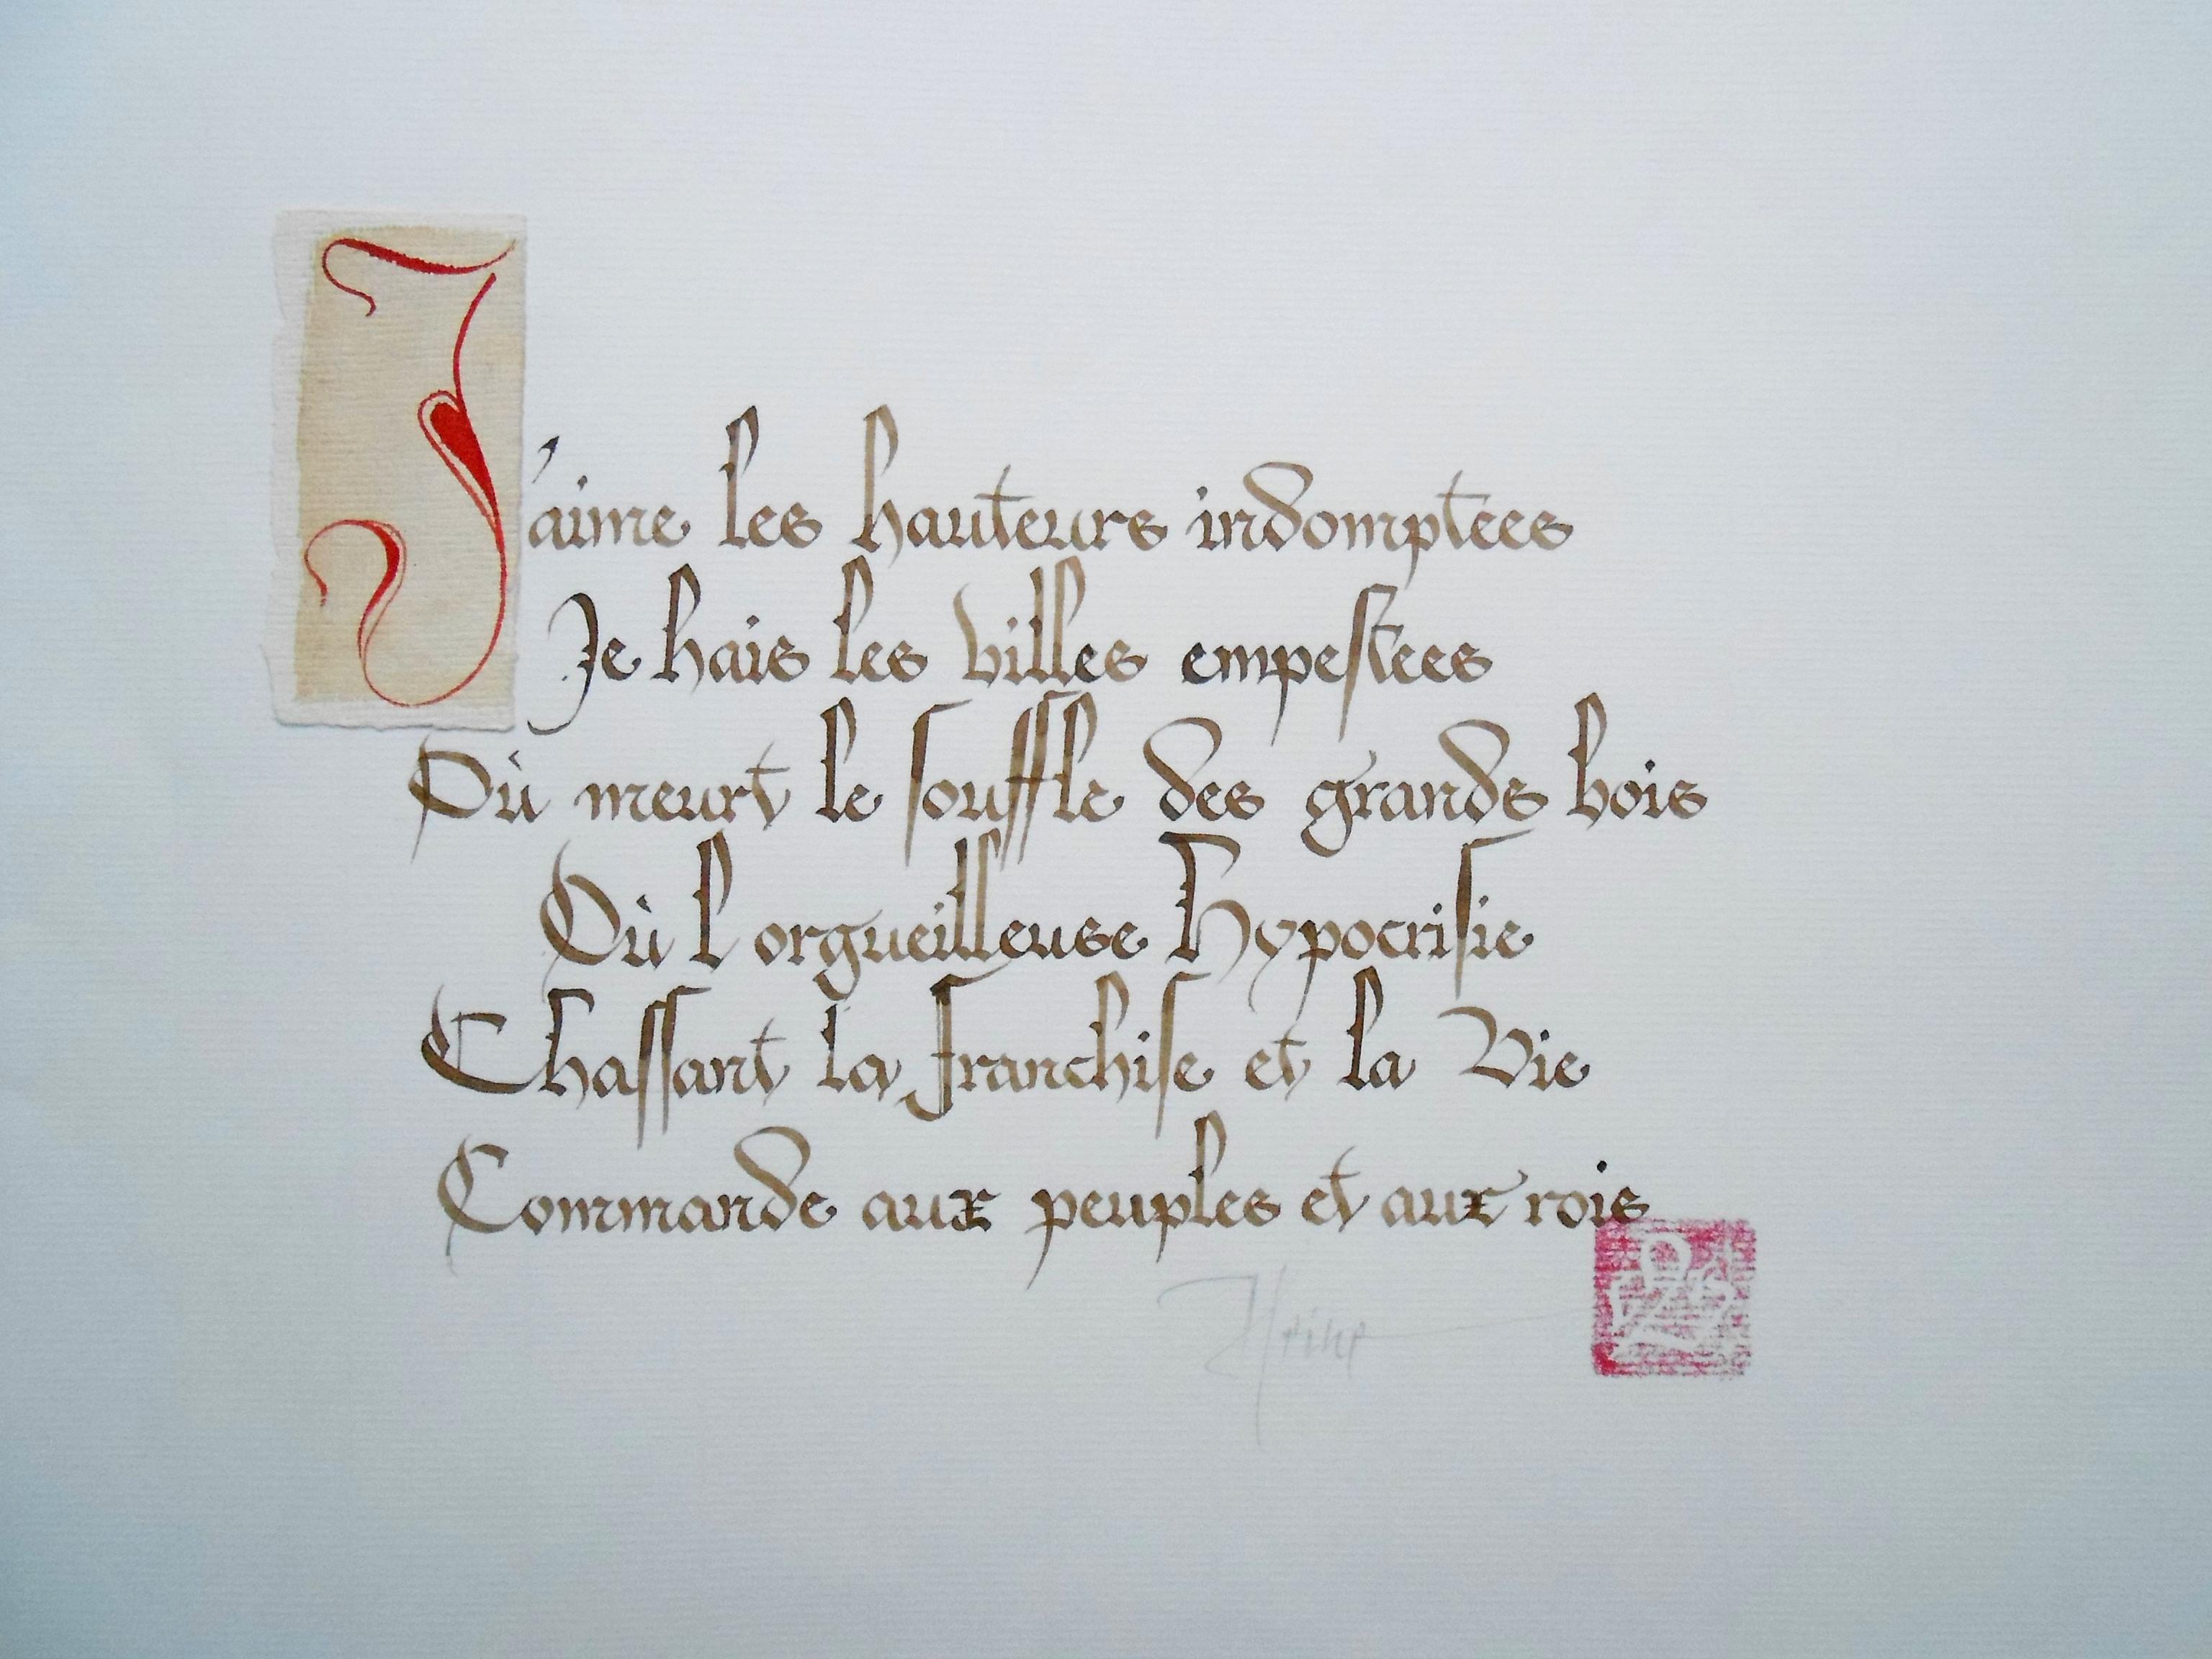 J'aime les hauteurs indomptees
Je hais les villes empestees
Où meurt le souffle des grands bois
Où l orgueilleuse hypocrisie
Chassant la franchise et la Vie
Commande aux peuples et aux rois